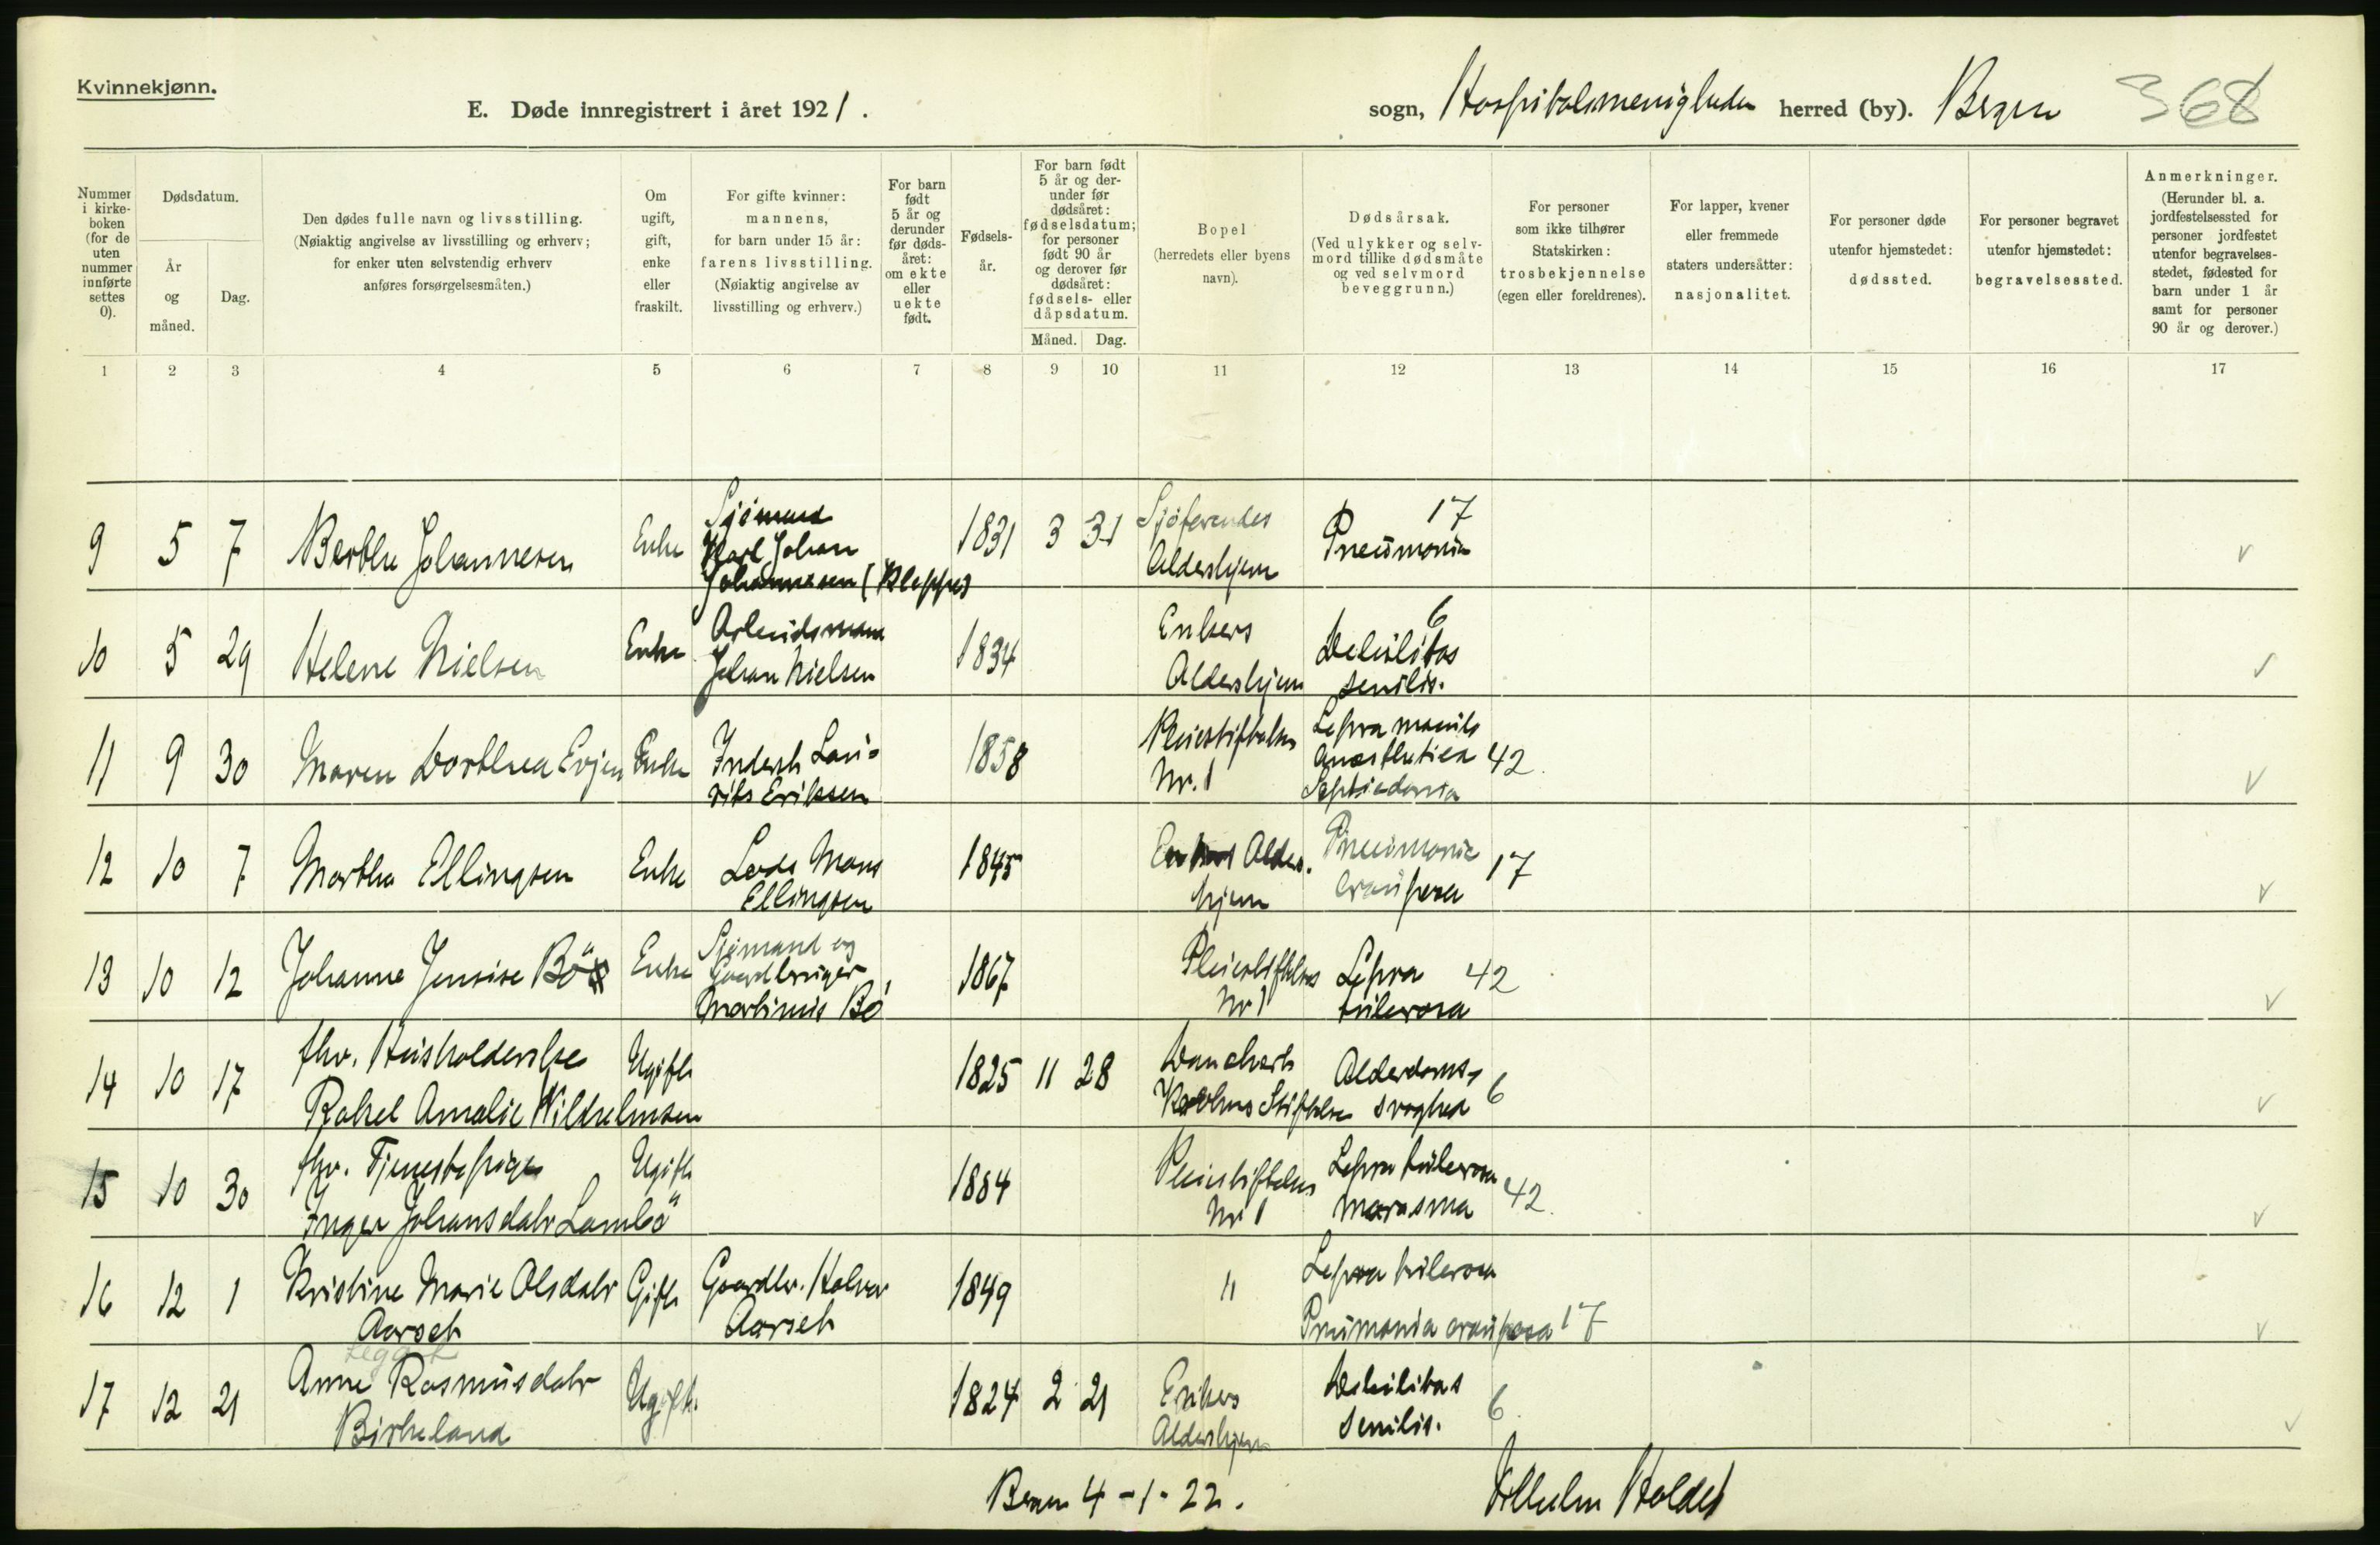 Kvinnekjønn.
E. Døde innregistrert i året 1921.
sogn, Hospitalsmenigheden herred (by). Bergen
368
Nummer i kirke- boken (for de uten nummer innførte settes 0).
Dødsdatum.
År og måned.
Dag.
Den dødes fulle navn og livsstilling.
(Nøiaktig angivelse av livsstilling og erhverv;
for enker uten selvstendig erhverv
anføres forsørgelsesmåten.)
Om ugift, gift, enke eller fraskilt.
For gifte kvinner: mannens, for barn under 15 år: farens livsstilling. (Nøiaktig angivelse av livsstilling og erhverv.)
For barn født 5 år og derunder før døds- året: om ekte eller uekte født.
Fødsels- år.
For barn født 5 år og der- under før dødsåret: fødselsdatum; for personer født 90 år og derover før dødsåret: fødsels- eller dåpsdatum.
Måned. Dag.
Bopel (herredets eller byens navn).
Dødsårsak. (Ved ulykker og selv- mord tillike dødsmåte og ved selvmord beveggrunn.)
For personer som ikke tilhører Statskirken: trosbekjennelse (egen eller foreldrenes).
For lapper, kvener eller fremmede staters undersåtter: nasjonalitet.
For personer døde utenfor hjemstedet: dødssted.
For personer begravet utenfor hjemstedet: begravelsessted.
Anmerkninger. (Herunder bl. a. jordfestelsessted for personer jordfestet utenfor begravelses- stedet, fødested for barn under 1 år samt for personer 90 år og derover.)
1 2 3 4 5 6 7 8 9 10 11 12 13 14 15 16 17
9 5 7 Berthe Johannesen Enke Sjömand Karl Johan Johannesen (Kleppe) 1831 3 31 Sjöfarendes Aldershjem Pneumonia 17
10 5 29 Helene Nielsen Enke Arbeidsmand Johan Nielsen 1834 Enkers Aldershjem Debilitas senilis. 6
11 9 30 Maren Dorthea Evjen Enke Inderst Lauritz Eriksen 1858 Pleiestiftelsen Nr. 1 Lepra anæsthetica 42
12 10 7 Martha Ellingsen Enke Lods Mons Ellingsen 1845 Enkers Alders. hjem Pneumonia crouposa 17
13 10 12 Johanne Jensine Bö Enke Sjömand og Gaardbruger Martinus Bö 1867 Pleiestiftelsen Nr 1 Lepra tuberosa 42
14 10 17 fhv. Husholderske Rakel Amalie Wilhelmsen Ugift 1825 11 28 Danckert Krohns Stiftelse Alderdoms- svaghed 6
15 10 30 fhv. Tjenestepige Inger Johansdatr Lambö Ugift 1884 Pleiestiftelsen Nr 1 Lepra tuberosa marasma 42
16 12 1 Kristine Marie Olsdatr Aarset Gift Gaardbr. Halvor Aarset 1849 " Lepra tuberosa Pneumonia crouposa 17
17 12 21 Legget Anne Rasmusdatr Birkeland Ugift. 1824 2 21 Enkers Aldershjem Debilitas senilis. 6
Bergen 4-1-22.
Vilhelm Koldes